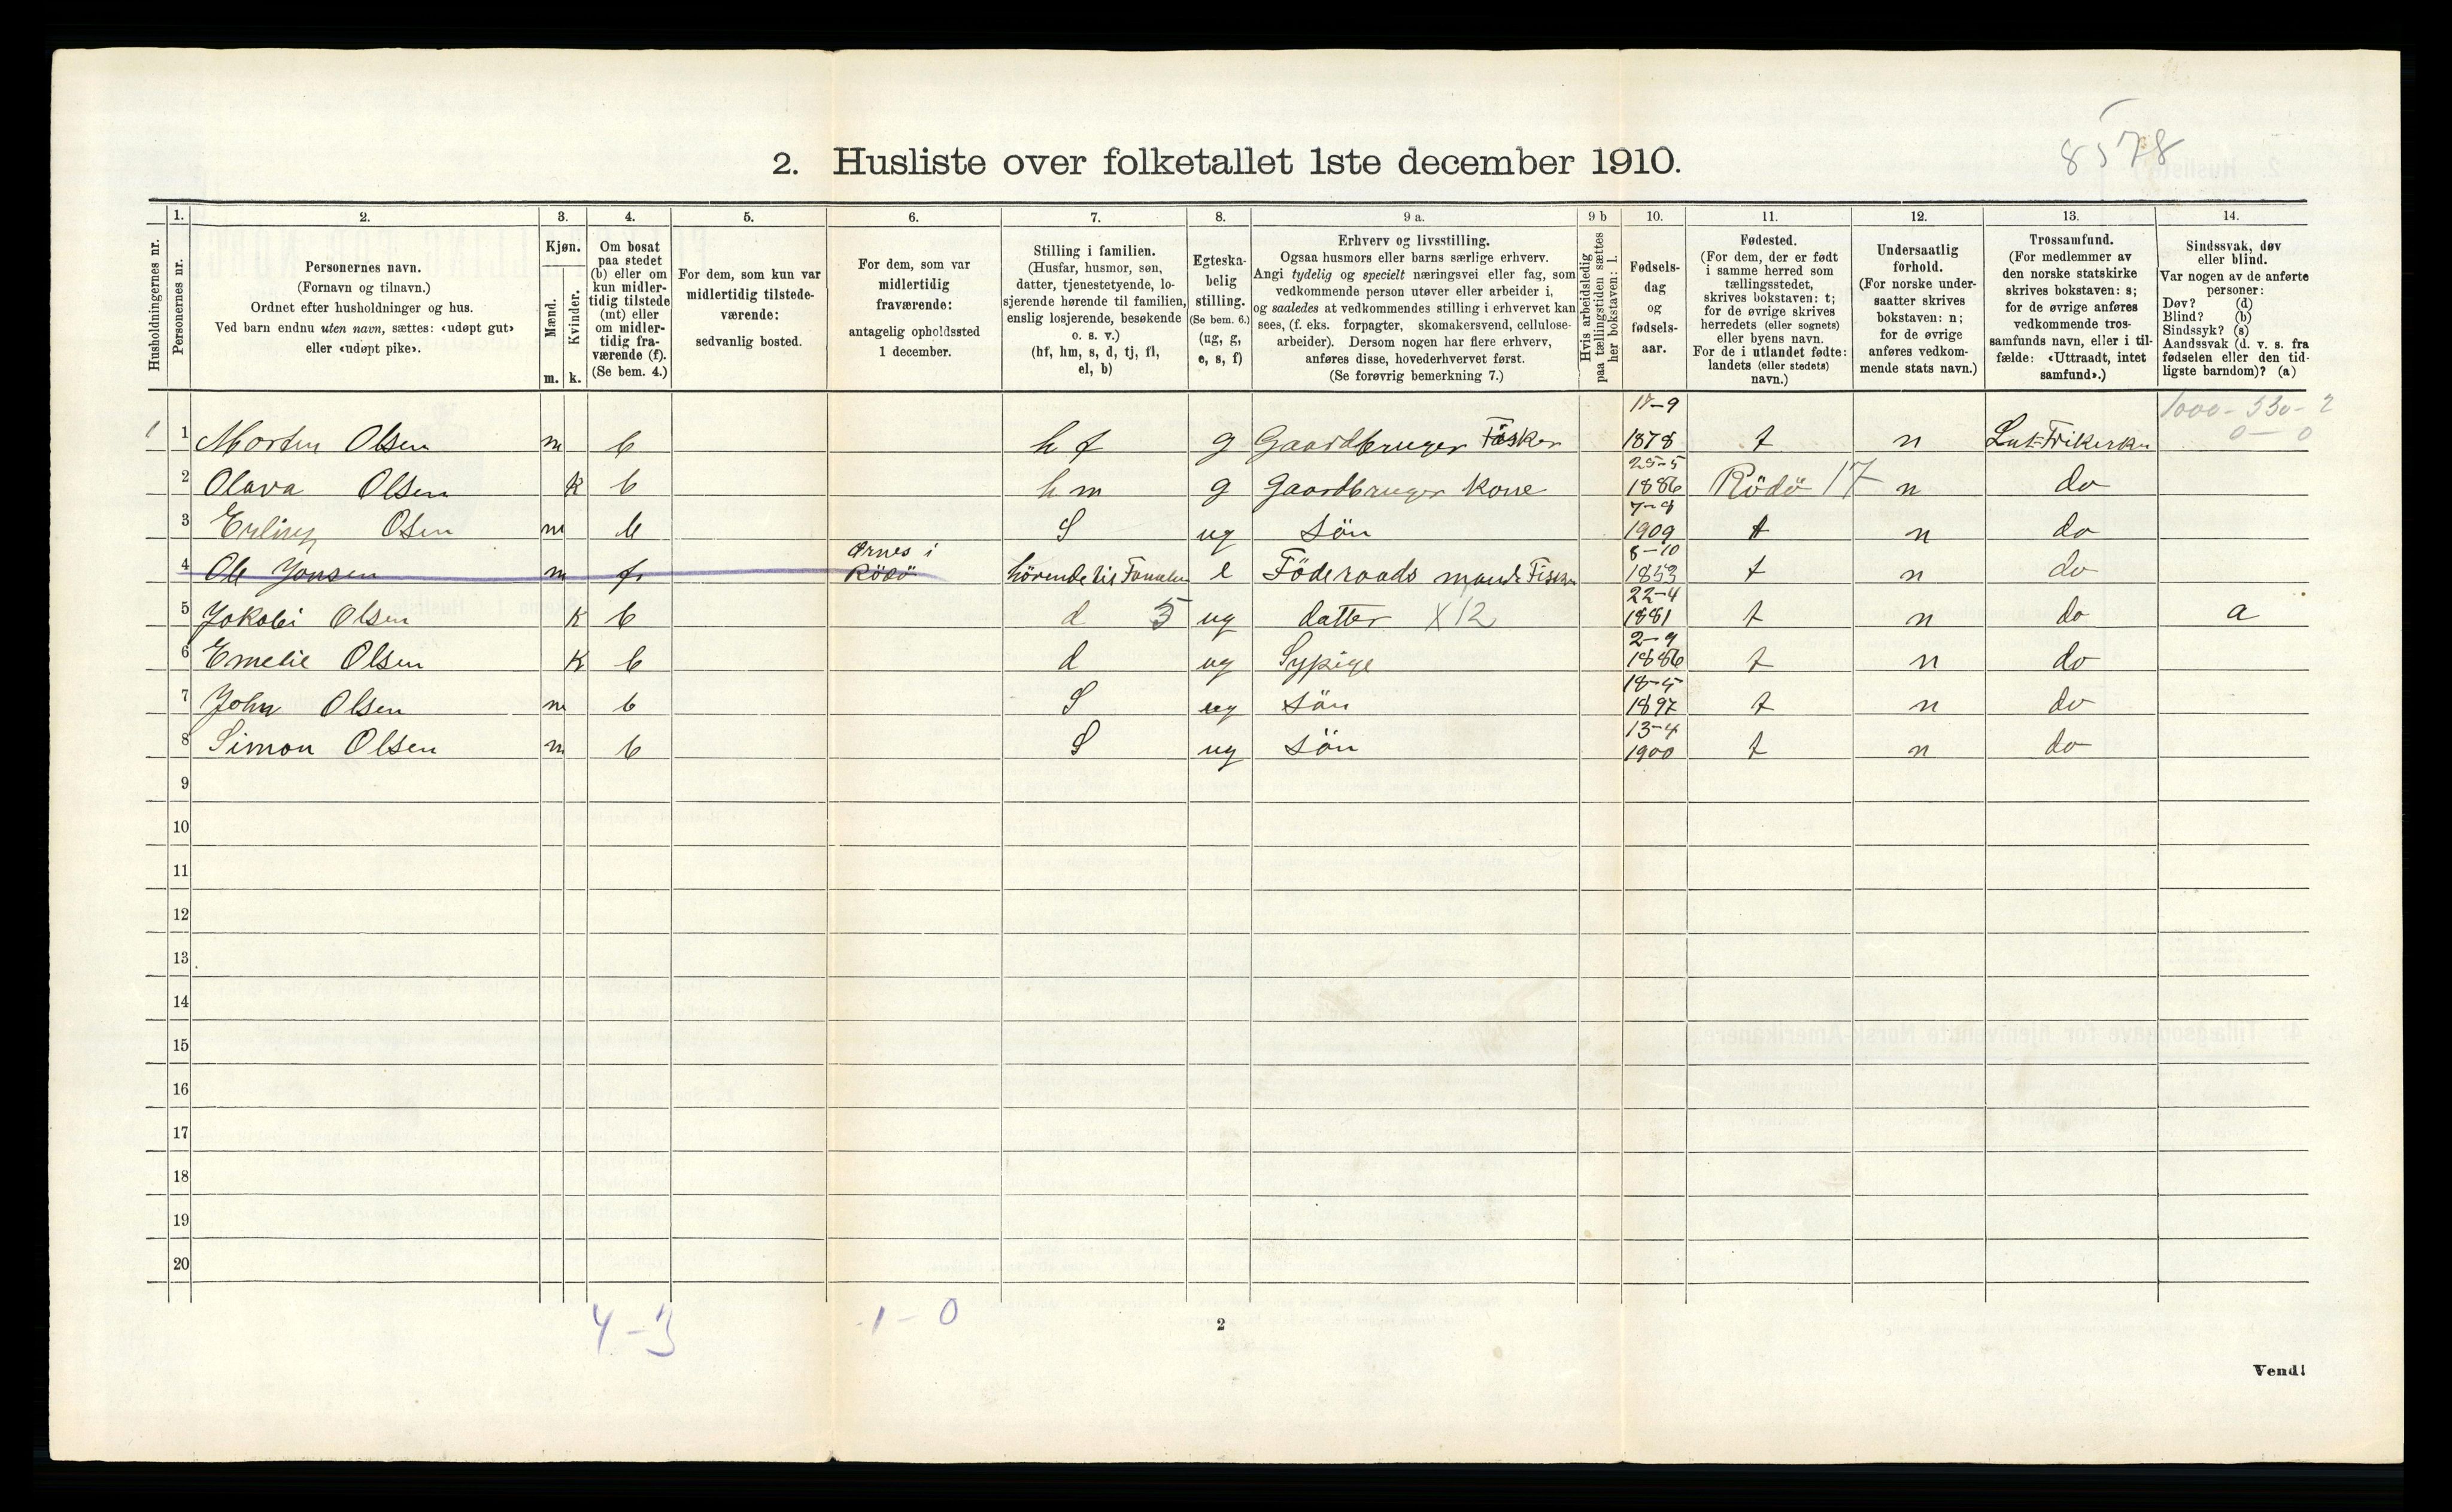 8578
2. Husliste over folketallet 1ste december 1910.
1. 2. 3. 4. 5. 6. 7. 8. 9 a. 9 b 10. 11. 12. 13. 14.
Husholdningernes nr.
Personernes nr.
Personernes navn.
(Fornavn og tilnavn.)
Ordnet efter husholdninger og hus.
Ved barn endnu uten navn, sættes: «udøpt gut»
eller «udøpt pike».
Kjøn.
Mænd.
Kvinder.
m. k.
Om bosat
paa stedet
(b) eller om
kun midler-
tidig tilstede
(mt) eller
om midler-
tidig fra-
værende (f).
(Se bem. 4.)
For dem, som kun var
midlertidig tilstede-
værende:
sedvanlig bosted.
For dem, som var
midlertidig
fraværende:
antagelig opholdssted
1 december.
Stilling i familien.
(Husfar, husmor, søn,
datter, tjenestetyende, lo-
sjerende hørende til familien,
enslig losjerende, besøkende
o. s. v.)
(hf, hm, s, d, tj, fl,
el, b)
Egteska-
belig
stilling.
(Se bem. 6.)
(ug, g,
e, s, f)
Erhverv og livsstilling.
Ogsaa husmors eller barns særlige erhverv.
Angi tydelig og specielt næringsvei eller fag, som
vedkommende person utøver eller arbeider i,
og saaledes at vedkommendes stilling i erhvervet kan
sees, (f. eks. forpagter, skomakersvend, cellulose-
arbeider). Dersom nogen har flere erhverv,
anføres disse, hovederhvervet først.
(Se forøvrig bemerkning 7.)
Hvis arbeidsledig
paa tællingstiden sættes
her bokstaven: l.
Fødsels-
dag
og
fødsels-
aar.
Fødested.
(For dem, der er født
i samme herred som
tællingsstedet,
skrives bokstaven: t;
for de øvrige skrives
herredets (eller sognets)
eller byens navn.
For de i utlandet fødte:
landets (eller stedets)
navn.)
Undersaatlig
forhold.
(For norske under-
saatter skrives
bokstaven: n;
for de øvrige
anføres vedkom-
mende stats navn.)
Trossamfund.
(For medlemmer av
den norske statskirke
skrives bokstaven: s;
for de øvrige anføres
vedkommende tros-
samfunds navn, eller i til-
fælde: «Uttraadt, intet
samfund».)
Sindssvak, døv
eller blind.
Var nogen av de anførte
personer:
Døv? (d)
Blind? (b)
Sindssyk? (s)
Aandssvak (d. v. s. fra
fødselen eller den tid-
ligste barndom)? (a)
1000 - 530 - 2
0 - 0
1 1 Morten Olsen m b h f g Gaardbruger Fisker 1878 t n Lut-Frikerken
25-5
2 Olava Olsen k b h m g Gaardbruger Kone 1886 Rödö 17 n do
3 Erling Olsen m b S ug Sön 1909 t n do
Ørnes i 8-10
4 Ole Jonsen m f. Rödö hörende til Familien e Föderaads mand Fisker 1853 t n do
22-4
5 Jakobi Olsen k b d 5 ug datter X12 1881 t n do a
2-9
6 Emelie Olsen k b d ug Sypige 1886 t n do
7 John Olsen m b S ug Sön 1897 t n do
13-4
8 Simon Olsen m b S ug Sön 1900 t n do
9
10
11
12
13
14
15
16
17
18
19
20
4-3 1-0
2
Vend!